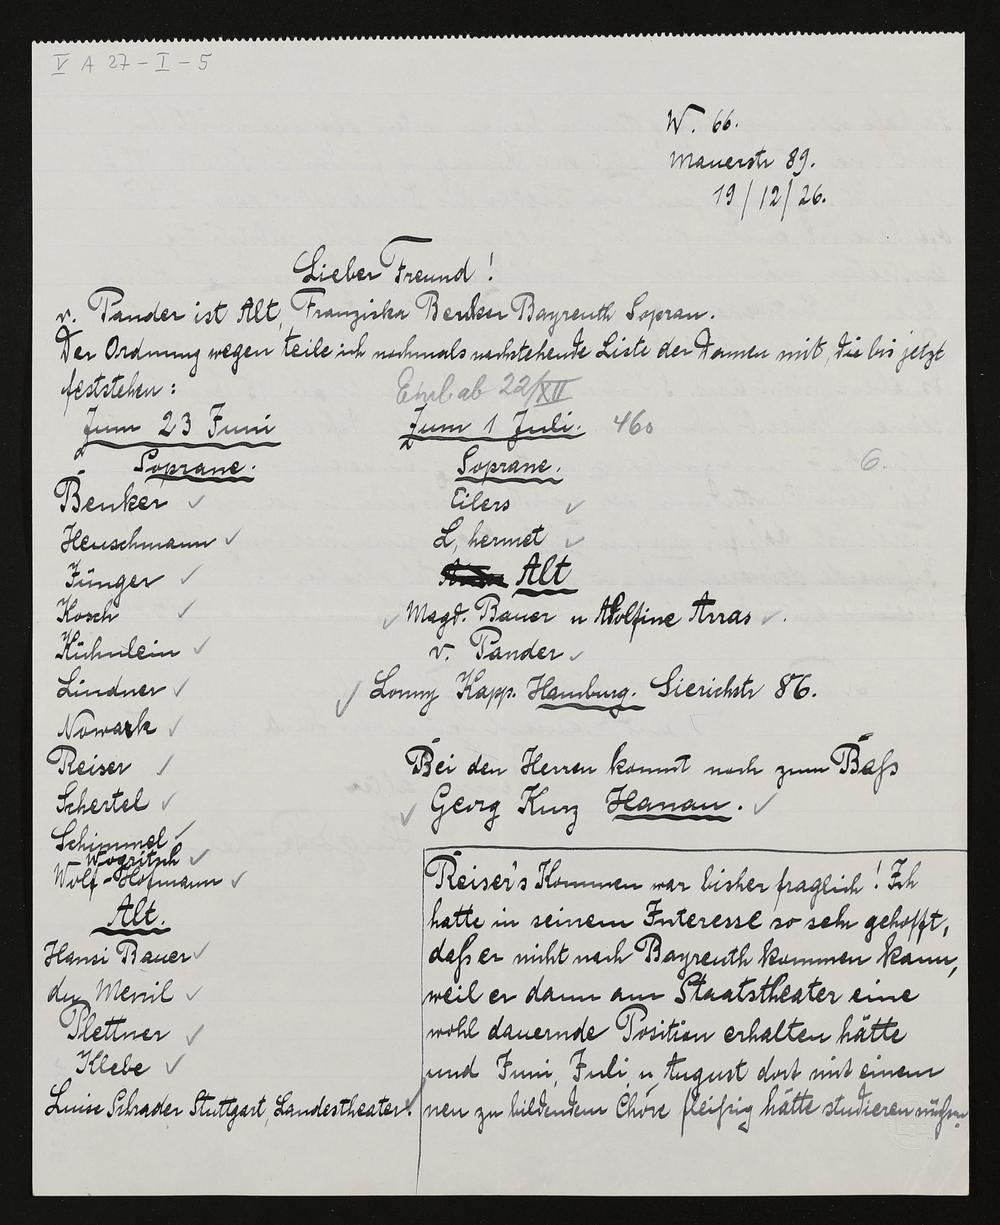 V A 27 - I - 5
W. 66.
Mauerstr 89.
19/12/26.
Lieber Freund!
v. Pander ist Alt, Franziska Benker Bayreuth Sopran.
Der Ordnung wegen teile ich nochmals nachstehende Liste der Damen mit, die bis jetzt
feststehen:
ab 22/XII
Zum 23 Juni
Soprane.
Benker
Henschmann
Jünger
Kosch
Kühnlein
Lindner
Nowark
Reiser
Schertel
Schimmel
Wogritsch
Wolf-Hofmann
Alt.
Hansi Bauer
du Menil
Plettner
Klebe
Luise Schrader Stuttgart, Landestheater.
Zum 1 Juli. 460
6.
Soprane.
Eilers
L, hermet
Alt
Magd. Bauer u Adolfine Arras.
v. Pander
Lonny Kapp. Hamburg. Sierichstr 86.
Bei den Herren kommt noch zum Baß
Georg Kunz Hanau.
Reiser's Kommen war bisher fraglich! Ich
hatte in seinem Interesse so sehr gehofft,
daß er nicht nach Bayreuth kommen kann,
weil er dann am Staatstheater eine
wohl dauernde Position erhalten hätte
und Juni, Juli u. August dort mit einem
neu zu bildendem Chore fleißig hätte studieren müssen.